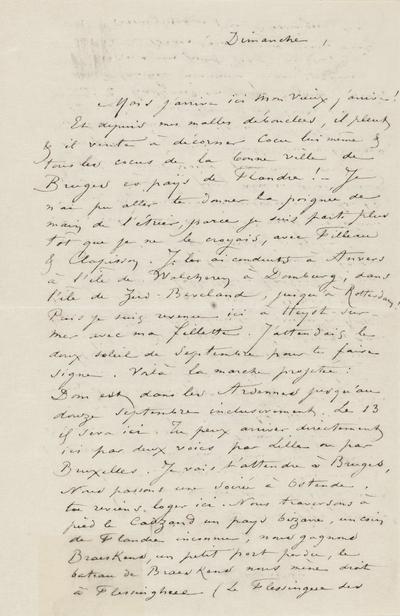 Dimanche,
Mais j'arrive ici mon vieux j'arrive!
Et depuis mes malles débouclées, il pleut
& il vente à décorner Cocu lui même &
tous les cocus de la bonne ville de
Bruges es pays de Flandre! — Je
n'ai pu aller te donner la poignée de
main de l'étrier, parce je suis parti plus
tôt que je ne le croyais, avec Filleau
& Clapisson. Je les ai conduits à Anvers
à l'île de Walcheren à Domburg, dans
l'île de Zuid-Beveland, jusqu'à Rotterdam!
Puis je suis revenu ici à Heyst-sur-
mer avec ma fillette. J'attendais le
doux soleil de Septembre pour te faire
signe. Voilà la marche projetée:
Dom est dans les Ardennes jusqu'au
douze Septembre inclusivement. Le 13
il sera ici. Tu peux arriver directement
ici par deux voies par Lille ou par
Bruxelles. Je vais t'attendre à Bruges,
Nous passons une soirée à Ostende.
tu reviens loger ici. Nous traversons à
pied le Cadzand un pays bizarre, un coin
de Flandre inconnue, nous gagnons
Braeskens, un petit port perdu, le
bateau de Braeskens nous mène droit
à Flessinghe (Le Flessingue des